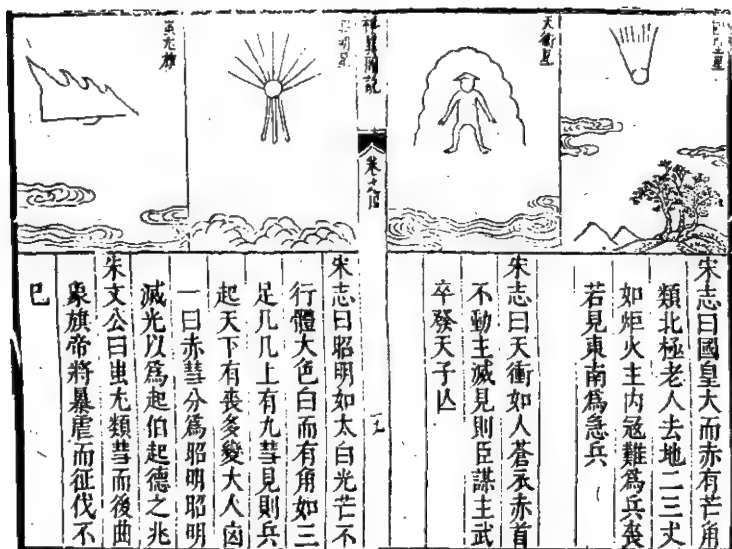 國皇星
宋志曰國皇大而赤有芒角
類北極老人去地二三丈
如炬火主内寇難爲兵喪
若見東南爲急兵
天衝星
宋志曰天衝如人蒼衣赤首
不動主滅見則臣謀主武
卒發天子亾
祥異圖說
卷之四
十九
昭明星
宋志曰昭明如太白光芒不
行體大色白而有角如三
足几几上有九彗見則兵
起天下有喪多變大人㐫
一曰赤彗分爲昭明昭明
滅光以爲起伯起德之兆
蚩尤旗
朱文公曰蚩尤類彗而後曲
象旗帝將暴虐而征伐不
巳